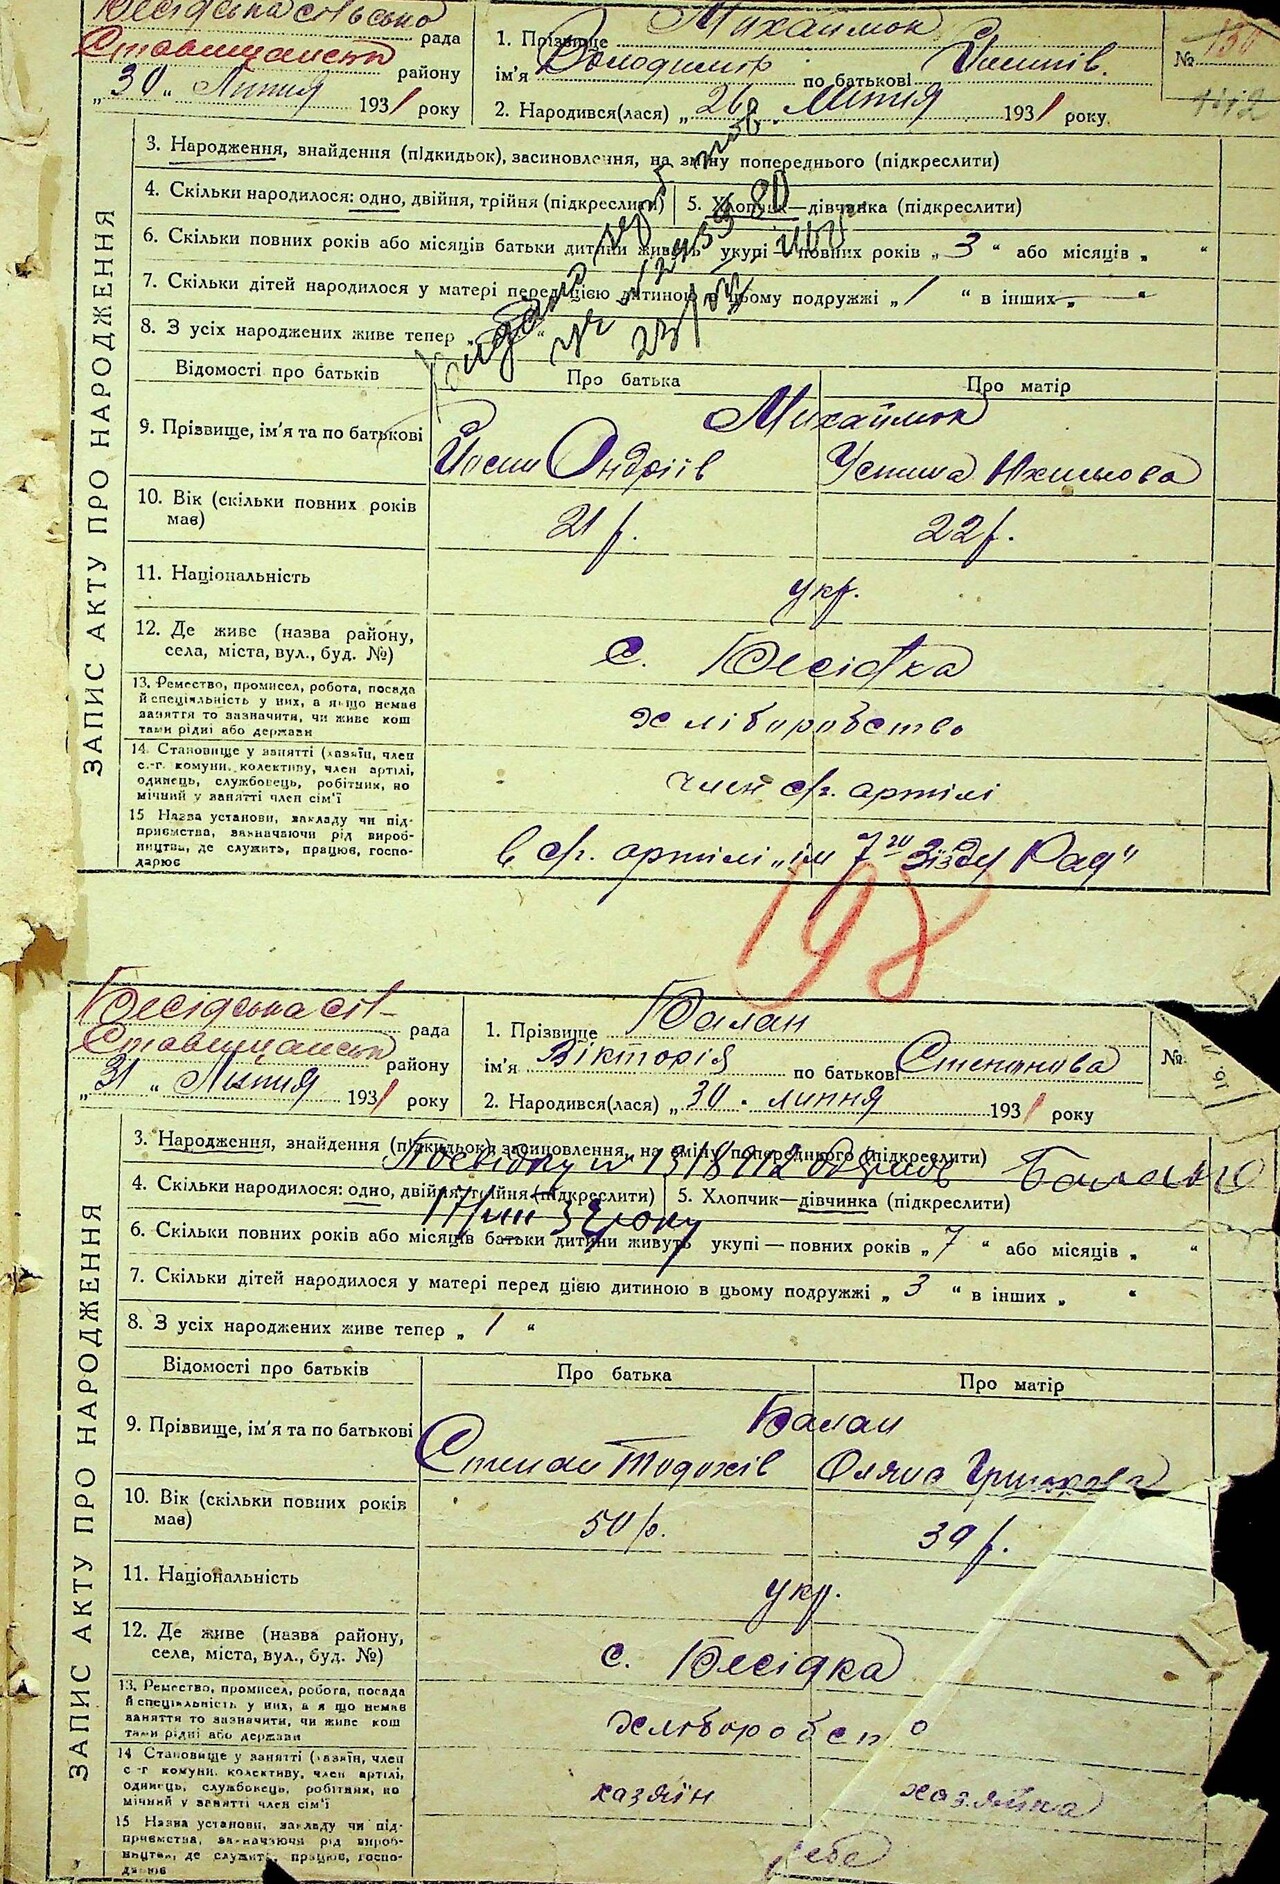 Бесідська сільська рада
Ставищанськ району
„30„ Липня 1931 року
1. Прізвище Михаймок
ім'я Володимир по батькові
2. Народився(лася) „26 Липня 1931 року
№ 130
ЗАПИС АКТУ ПРО НАРОДЖЕННЯ
3. Народження, знайдення (підкидьок), засиновлення, на зміну попереднього (підкреслити)
4. Скільки народилося: одно, двійня, трійня (підкреслити) 5. Хлопчик—дівчинка (підкреслити)
6. Скільки повних років або місяців батьки дитини живуть укупі — повних років „ 3 “ або місяців „ “
7. Скільки дітей народилося у матері перед цією дитиною в цьому подружжі „ 1 “ в інших „ — “
8. З усіх народжених живе тепер „ “
23/
Відомості про батьків Про батька Про матір
9. Прізвище, ім'я та по батькові Михаймок
Йосип Андріїв Устина Якимова
10. Вік (скільки повних років має) 21 р. 22 р.
11. Національність укр.
12. Де живе (назва району, села, міста, вул., буд. №) с. Бесідка
13. Ремество, промисел, робота, посада
й спеціяльність у них, а якщо немає
заняття то зазначити, чи живе кош
тами рідні або держави
хліборобство
14. Становище у занятті (хазяїн, член
с.-г. комуни, колективу, член артілі,
одинець, службовець, робітник, по
мічний у занятті член сім'ї
член с/г. артілі
15 Назва установи, закладу чи під-
приємства, зазначаючи рід вироб-
ництва, де служить, працює, госпо-
дарює
в с/г. артілі „ім 7го Зізду Рад"
198
Бесідська сіл- рада
Ставищанськ району
„31„ Липня 1931 року
1. Прізвище Балан
ім'я Вікторія по батькові Степанова
2. Народився(лася) „30. липня 1931 року
№
ЗАПИС АКТУ ПРО НАРОДЖЕННЯ
3. Народження, знайдення (підкидьок), засиновлення, на зміну попереднього (підкреслити)
4. Скільки народилося: одно, двійня, трійня (підкреслити) 5. Хлопчик—дівчинка (підкреслити)
6. Скільки повних років або місяців батьки дитини живуть укупі — повних років „ 7 “ або місяців „ “
7. Скільки дітей народилося у матері перед цією дитиною в цьому подружжі „ 3 “ в інших „ “
8. З усіх народжених живе тепер „ 1 “
Відомості про батьків Про батька Про матір
9. Прізвище, ім'я та по батькові Балан
Степан Тодохів Оляна
10. Вік (скільки повних років має) 50 р. 39 р.
11. Національність укр.
12. Де живе (назва району, села, міста, вул., буд. №) с. Бесідка
13. Ремество, промисел, робота, посада
й спеціяльність у них, а якщо немає
заняття то зазначити, чи живе кош
тами рідні або держави
хліборобство
14 Становище у занятті (хазяїн, член
с-г комуни, колективу, член артілі,
одинець, службовець, робітник, по
мічний у занятті член сім'ї
хазяїн хазяйка
15 Назва установи, закладу чи під-
приємства, зазначаючи рід вироб-
ництва, де служить, працює, госпо-
дарює
себе